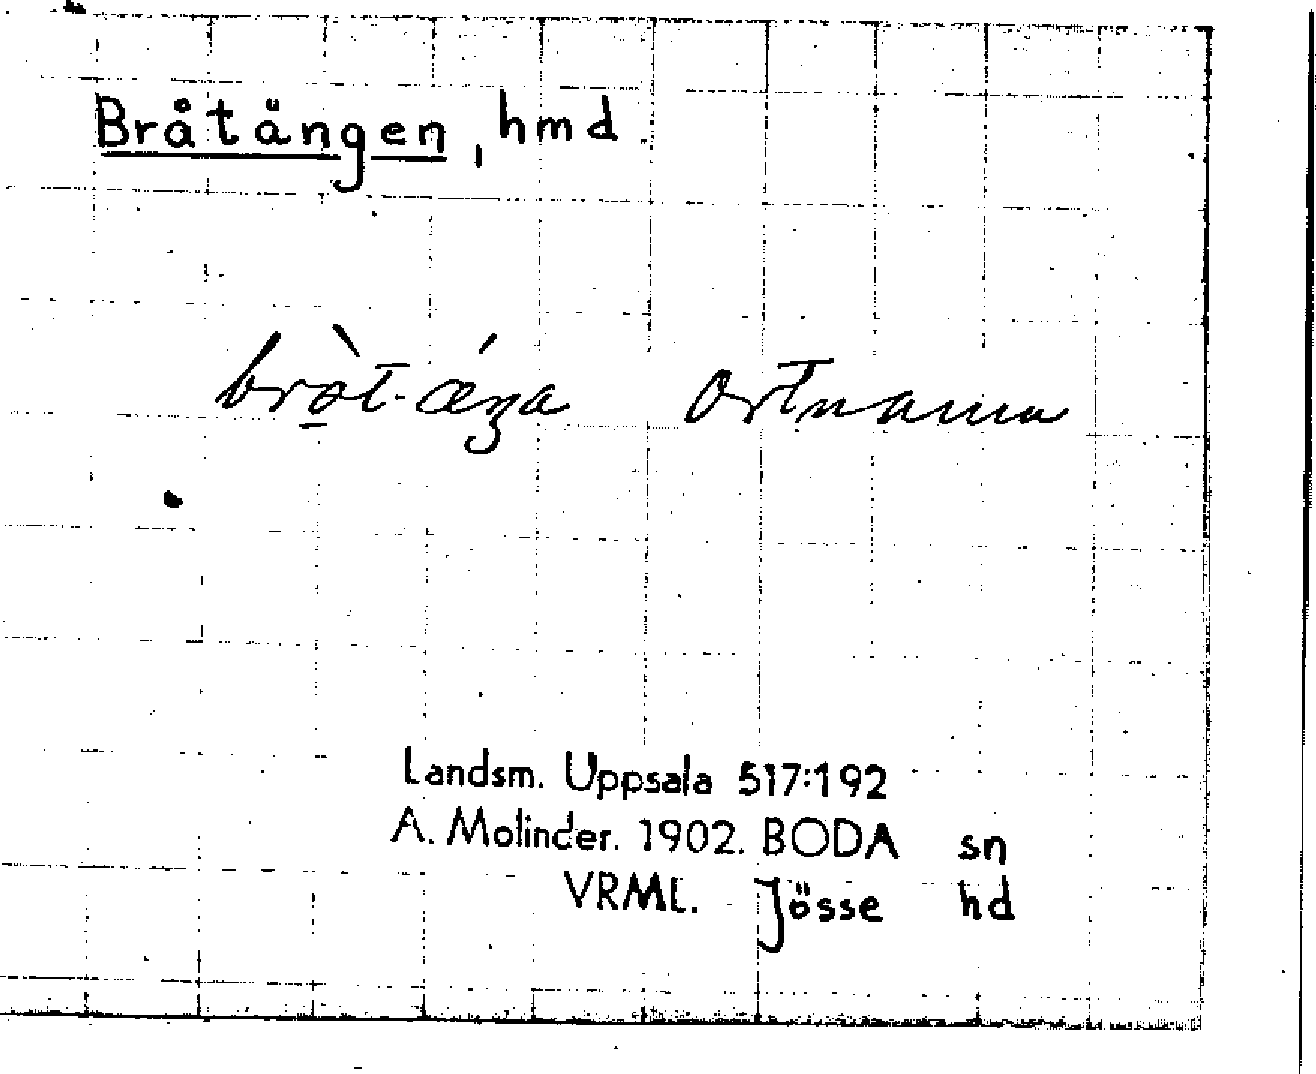 Bråtängen, hmd.
brò̱t-ǽŋa ortnamn
Landsm. Uppsala 517:192
A. Molinder. 1902. BODA sn
VRML. Jösse hd